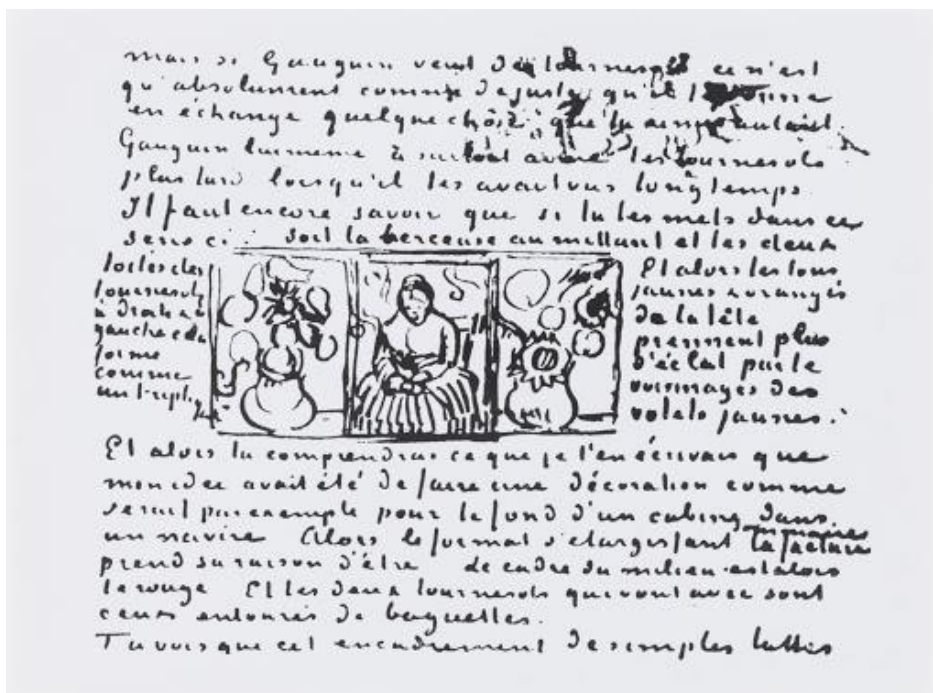 mais si Gauguin veut des tournesols ce n'est
qu'absolument comme de juste qu'il te donne
en échange quelque chose que tu aimes autant.
Gauguin lui même a surtout aimé les tournesols
plus tard lorsqu'il les avait vus longtemps.
Il faut encore savoir que si tu les mets dans ce
sens ci: soit la berceuse au milieu et les deux
toiles des
tournesols
à droite &
gauche cela
forme
comme
un triptyque.
Et alors les tons
jaunes & orangés
de la tête
prennent plus
d'éclat par le
voisinages des
volets jaunes.
Et alors tu comprendras ce que je t'en écrivais que
mon idée avait été de faire une décoration comme
serait par exemple pour le fond d'un cabine dans
un navire Alors le format s'élargissant la facture sommaire
prend sa raison d'être le cadre du milieu est alors
le rouge Et les deux tournesols qui vont avec sont
ceux entourés de baguettes.
Tu vois que cet encadrement de simples lattes